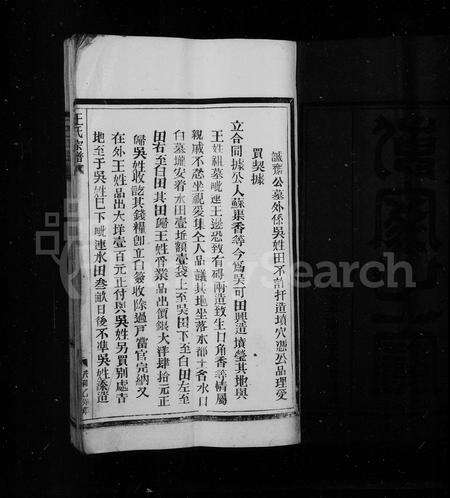 誠齋公墓外係吳姓田不許扦造墳穴憑公品理受
買契據
立合同據公人蘇渠香等今爲吳可田興造墳塋其地與
王姓祖墓毗連王邊恐致有碍兩造致生口角香等情屬
親戚不忍坐視爰集全人品議其地坐落水部土名水口
白墓壠安着水田壹坵額壹袋上至吳田下至自田左至
田右至自田其田歸王姓管業品出價銀大洋肆拾元正
歸吳姓收訖其錢糧卽立白簽收除過戶當官完納又
在外王姓品出大洋壹百元正付與吳姓另買別處吉
地至于吳姓巳下毗連水田叁畝日後不準吳姓添造
王氏宗譜
OneSearch